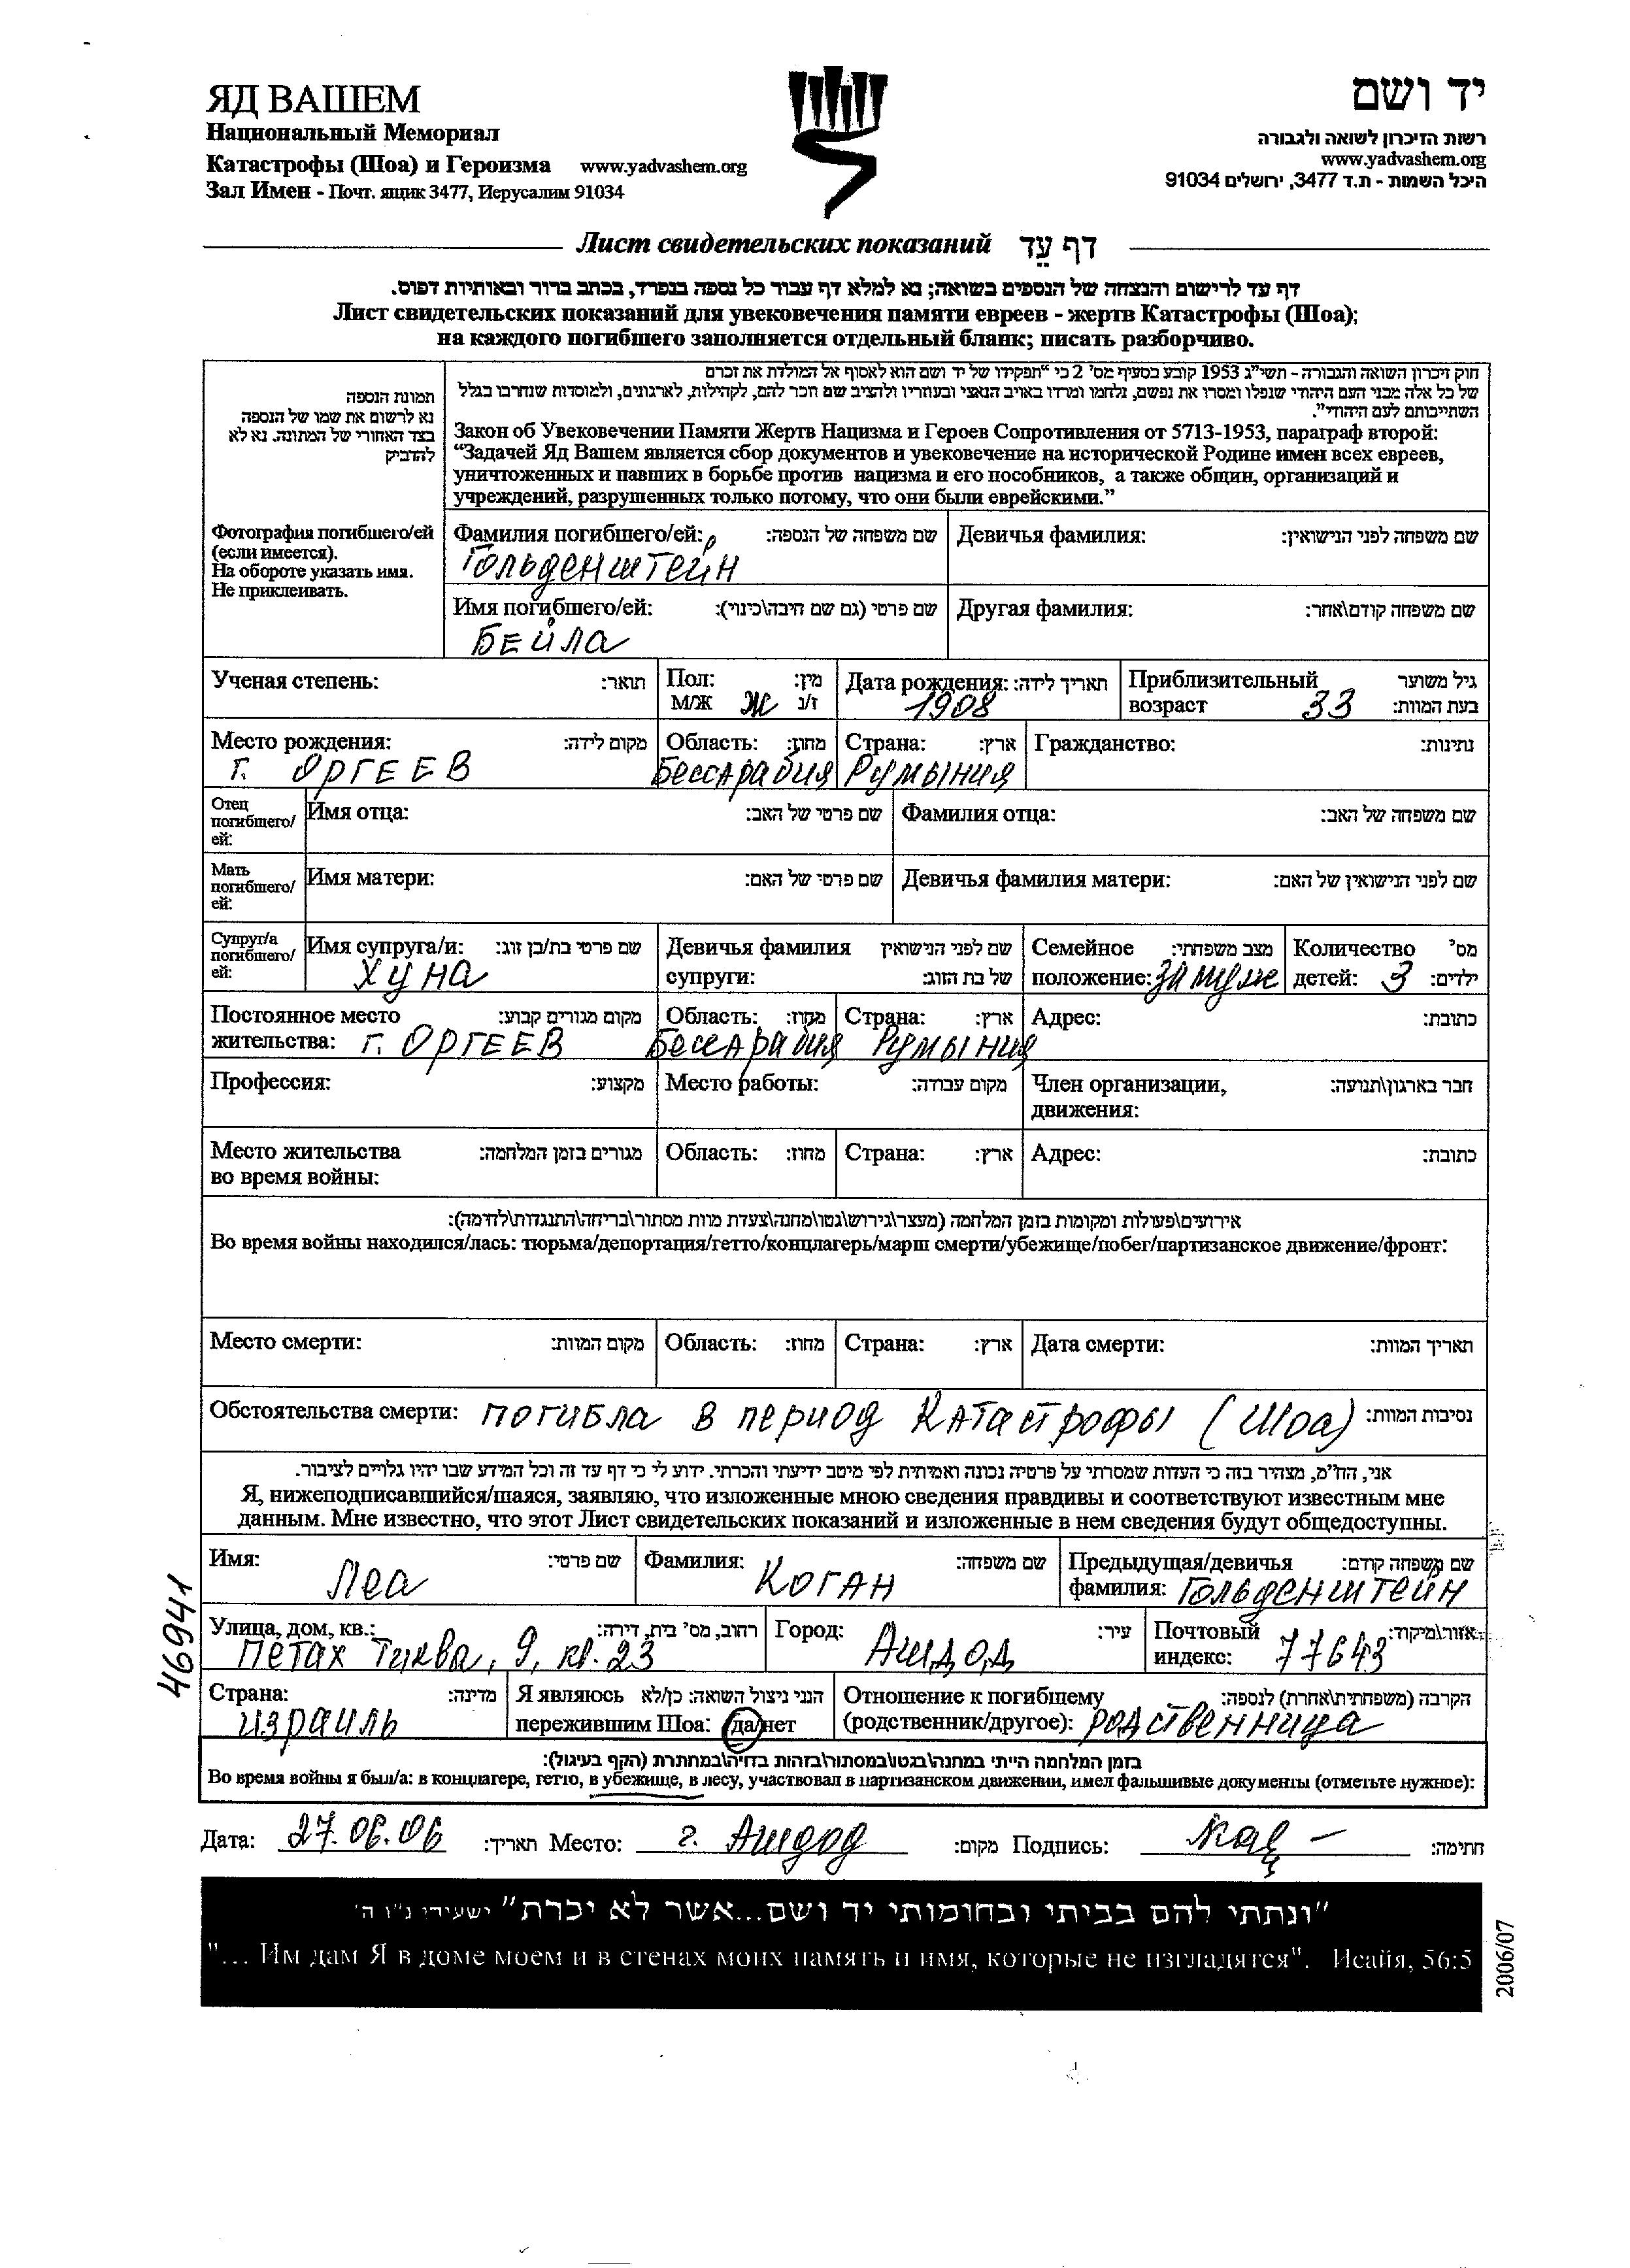 ЯД ВАШЕМ
Национальный Мемориал
Катастрофы (Шоа) и Героизма www.yadvashem.org
Зал Имен - Почт. ящик 3477, Иерусалим 91034
יד ושם
רשות הזיכרון לשואה ולגבורה
www.yadvashem.org
היכל השמות - ת.ד 3477, ירושלים 91034
Лист свидетельских показаний דף עֵד
דף עד לרישום והנצחה של הנספים בשואה; נא למלא דף עבור כל נספה בנפרד, בכתב ברור ובאותיות דפוס.
Лист свидетельских показаний для увековечения памяти евреев - жертв Катастрофы (Шоа);
на каждого погибшего заполняется отдельный бланк; писать разборчиво.
תמונת הנספה
נא לרשום את שמו של הנספה
בצד האחורי של התמונה. נא לא
להדביק
Фотография погибшего/ей
(если имеется).
На обороте указать имя.
Не приклеивать.
חוק זיכרון השואה והגבורה - תשי"ג 1953 קובע בסעיף מס' 2 כי "תפקידו של יד ושם הוא לאסוף אל המולדת את זכרם
של כל אלה מבני העם היהודי שנפלו ומסרו את נפשם, נלחמו ומרדו באויב הנאצי ובעוזריו ולהציב שם וזכר להם, לקהילות, לארגונים, ולמוסדות שנחרבו בגלל
השתייכותם לעם היהודי".
Закон об Увековечении Памяти Жертв Нацизма и Героев Сопротивления от 5713-1953, параграф второй:
“Задачей Яд Вашем является сбор документов и увековечение на исторической Родине имен всех евреев,
уничтоженных и павших в борьбе против нацизма и его пособников, а также общин, организаций и
учреждений, разрушенных только потому, что они были еврейскими.”
Фамилия погибшего/ей: שם משפחה של הנספה:
Гольденштейн
Девичья фамилия: שם משפחה לפני הנישואין:
Имя погибшего/ей: שם פרטי (גם שם חיבה\כינוי):
Бейла
Другая фамилия: שם משפחה קודם\אחר:
Ученая степень: תואר:
Пол: מין:
М/Ж Ж ז/נ
Дата рождения: תאריך לידה:
1908
Приблизительный גיל משוער
возраст 33 בעת המוות:
Место рождения: מקום לידה:
г. Оргеев
Область: מחוז:
Бессарабия
Страна: ארץ:
Румыния
Гражданство: נתינות:
Отец
погибшего/
ей:
Имя отца: שם פרטי של האב:
Фамилия отца: שם משפחה של האב:
Мать
погибшего/
ей:
Имя матери: שם פרטי של האם:
Девичья фамилия матери: שם לפני הנישואין של האם:
Супруг/а
погибшего/
ей:
Имя супруга/и: שם פרטי בת/בן זוג:
Хуна
Девичья фамилия שם לפני הנישואין
супруги: של בת הזוג:
Семейное מצב משפחתי:
положение: замуже
Количество מס'
детей: 3 ילדים:
Постоянное место מקום מגורים קבוע:
жительства: г. Оргеев
Область: מחוז:
Бессарабия
Страна: ארץ:
Румыния
Адрес: כתובת:
Профессия: מקצוע:
Место работы: מקום עבודה:
Член организации, חבר בארגון\תנועה:
движения:
Место жительства מגורים בזמן המלחמה:
во время войны:
Область: מחוז:
Страна: ארץ:
Адрес: כתובת:
אירועים\פעולות ומקומות בזמן המלחמה (מעצר\גירוש\גטו\מחנה\צעדת מוות מסתור\בריחה\התנגדות\לחימה):
Во время войны находился/лась: тюрьма/депортация/гетто/концлагерь/марш смерти/убежище/побег/партизанское движение/фронт:
Место смерти: מקום המוות:
Область: מחוז:
Страна: ארץ:
Дата смерти: תאריך המוות:
Обстоятельства смерти: погибла в период Катастрофы (Шоа) נסיבות המוות:
אני, הח"מ, מצהיר בזה כי העדות שמסרתי על פרטיה נכונה ואמיתית לפי מיטב ידיעתי והכרתי. ידוע לי כי דף עד זה וכל המידע שבו יהיו גלויים לציבור.
Я, нижеподписавшийся/шаяся, заявляю, что изложенные мною сведения правдивы и соответствуют известным мне
данным. Мне известно, что этот Лист свидетельских показаний и изложенные в нем сведения будут общедоступны.
Имя: שם פרטי:
Леа
Фамилия: שם משפחה:
Коган
Предыдущая/девичья שם משפחה קודם:
фамилия: Гольденштейн
Улица, дом, кв.: רחוב, מס' בית, דירה:
Петах Тиква, 9, кв. 23
Город: עיר:
Ашдод
Почтовый אזור\מיקוד:
индекс: 77643
Страна: מדינה:
Израиль
Я являюсь הנני ניצול השואה: כן/לא
пережившим Шоа: да/нет
Отношение к погибшему הקרבה (משפחתית\אחרת) לנספה:
(родственник/другое): родственница
בזמן המלחמה הייתי במחנה\בגטו\במסתור\בזהות בדויה\במחתרת (הקף בעיגול):
Во время войны я был/а: в концлагере, гетто, в убежище, в лесу, участвовал в партизанском движении, имел фальшивые документы (отметьте нужное):
Дата: 27.06.06 תאריך: Место: г. Ашдод מקום: Подпись: חתימה:
"ונתתי להם בביתי ובחומותי יד ושם...אשר לא יכרת" ישעיהו נ"ו ה'
"... Им дам Я в доме моем и в стенах моих память и имя, которые не изгладятся". Исайя, 56:5
46941
2006/07